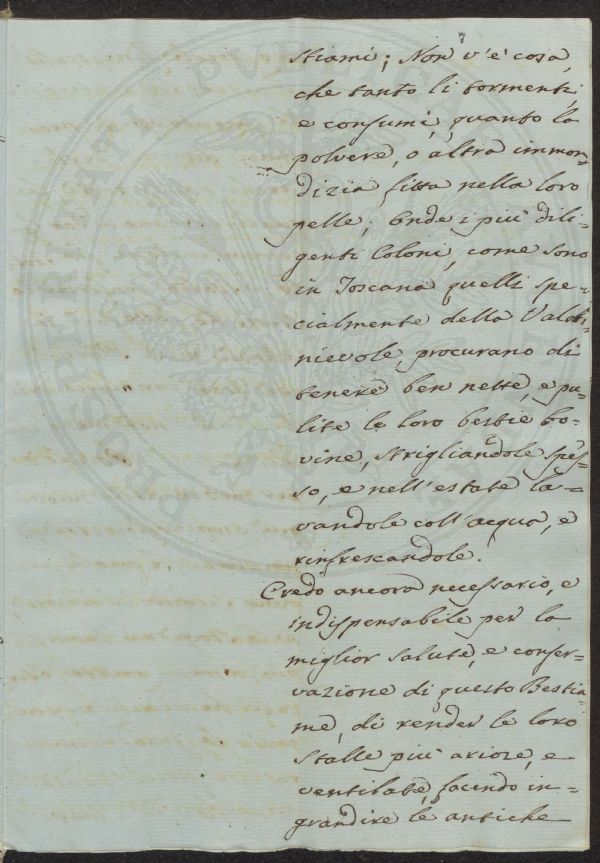 7
stiami; Non v'è cosa,
che tanto li tormenti,
e consumi, quanto la
polvere, o altra immon-
dizia fitta nella loro
pelle; Onde i più dili-
genti Coloni, come sono
in Toscana quelli spe-
cialmente della Valdi-
nievole, procurano di
tenere ben nette, e pu-
lite le loro bestie bo-
vine, strigliandole spes-
so, e nell'estate la-
vandole coll'acqua, e
rinfrescandole.
Credo ancora necessario, e
indispensabile per la
miglior salute, e conser-
vazione di questo Bestia-
me, di render le loro
stalle più ariose, e
ventilate, facendo in-
grandire le antiche
PROSPERITATI PUBLICAE